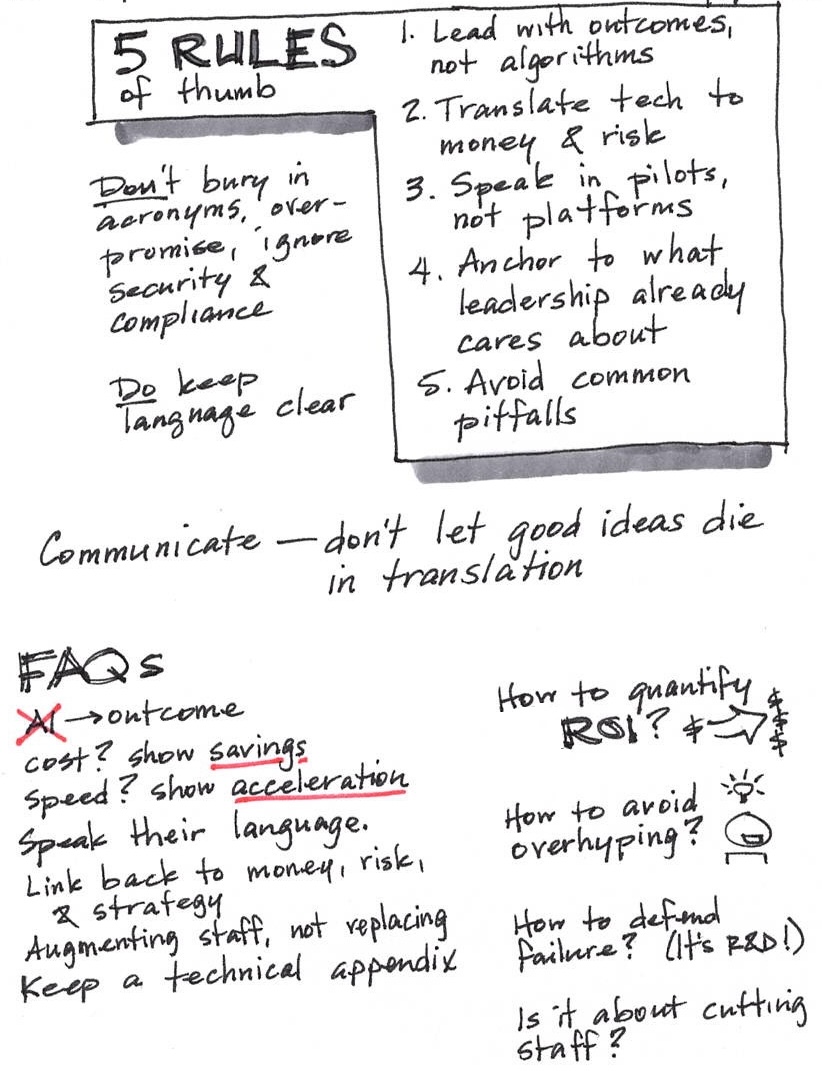 5 RULES
of thumb
1. Lead with outcomes,
not algorithms
2. Translate tech to
money & risk
3. Speak in pilots,
not platforms
4. Anchor to what
leadership already
cares about
5. Avoid common
pitfalls
Don't bury in
acronyms, over-
promise, ignore
security &
compliance
Do keep
language clear
Communicate — don't let good ideas die
in translation
FAQs
AI → outcome
cost? show savings
Speed? show acceleration
Speak their language.
Link back to money, risk,
& strategy
Augmenting staff, not replacing
Keep a technical appendix
How to quantify
ROI? $ → $ $ $
How to avoid
overhyping?
How to defend
failure? (It's R&D!)
Is it about cutting
staff?